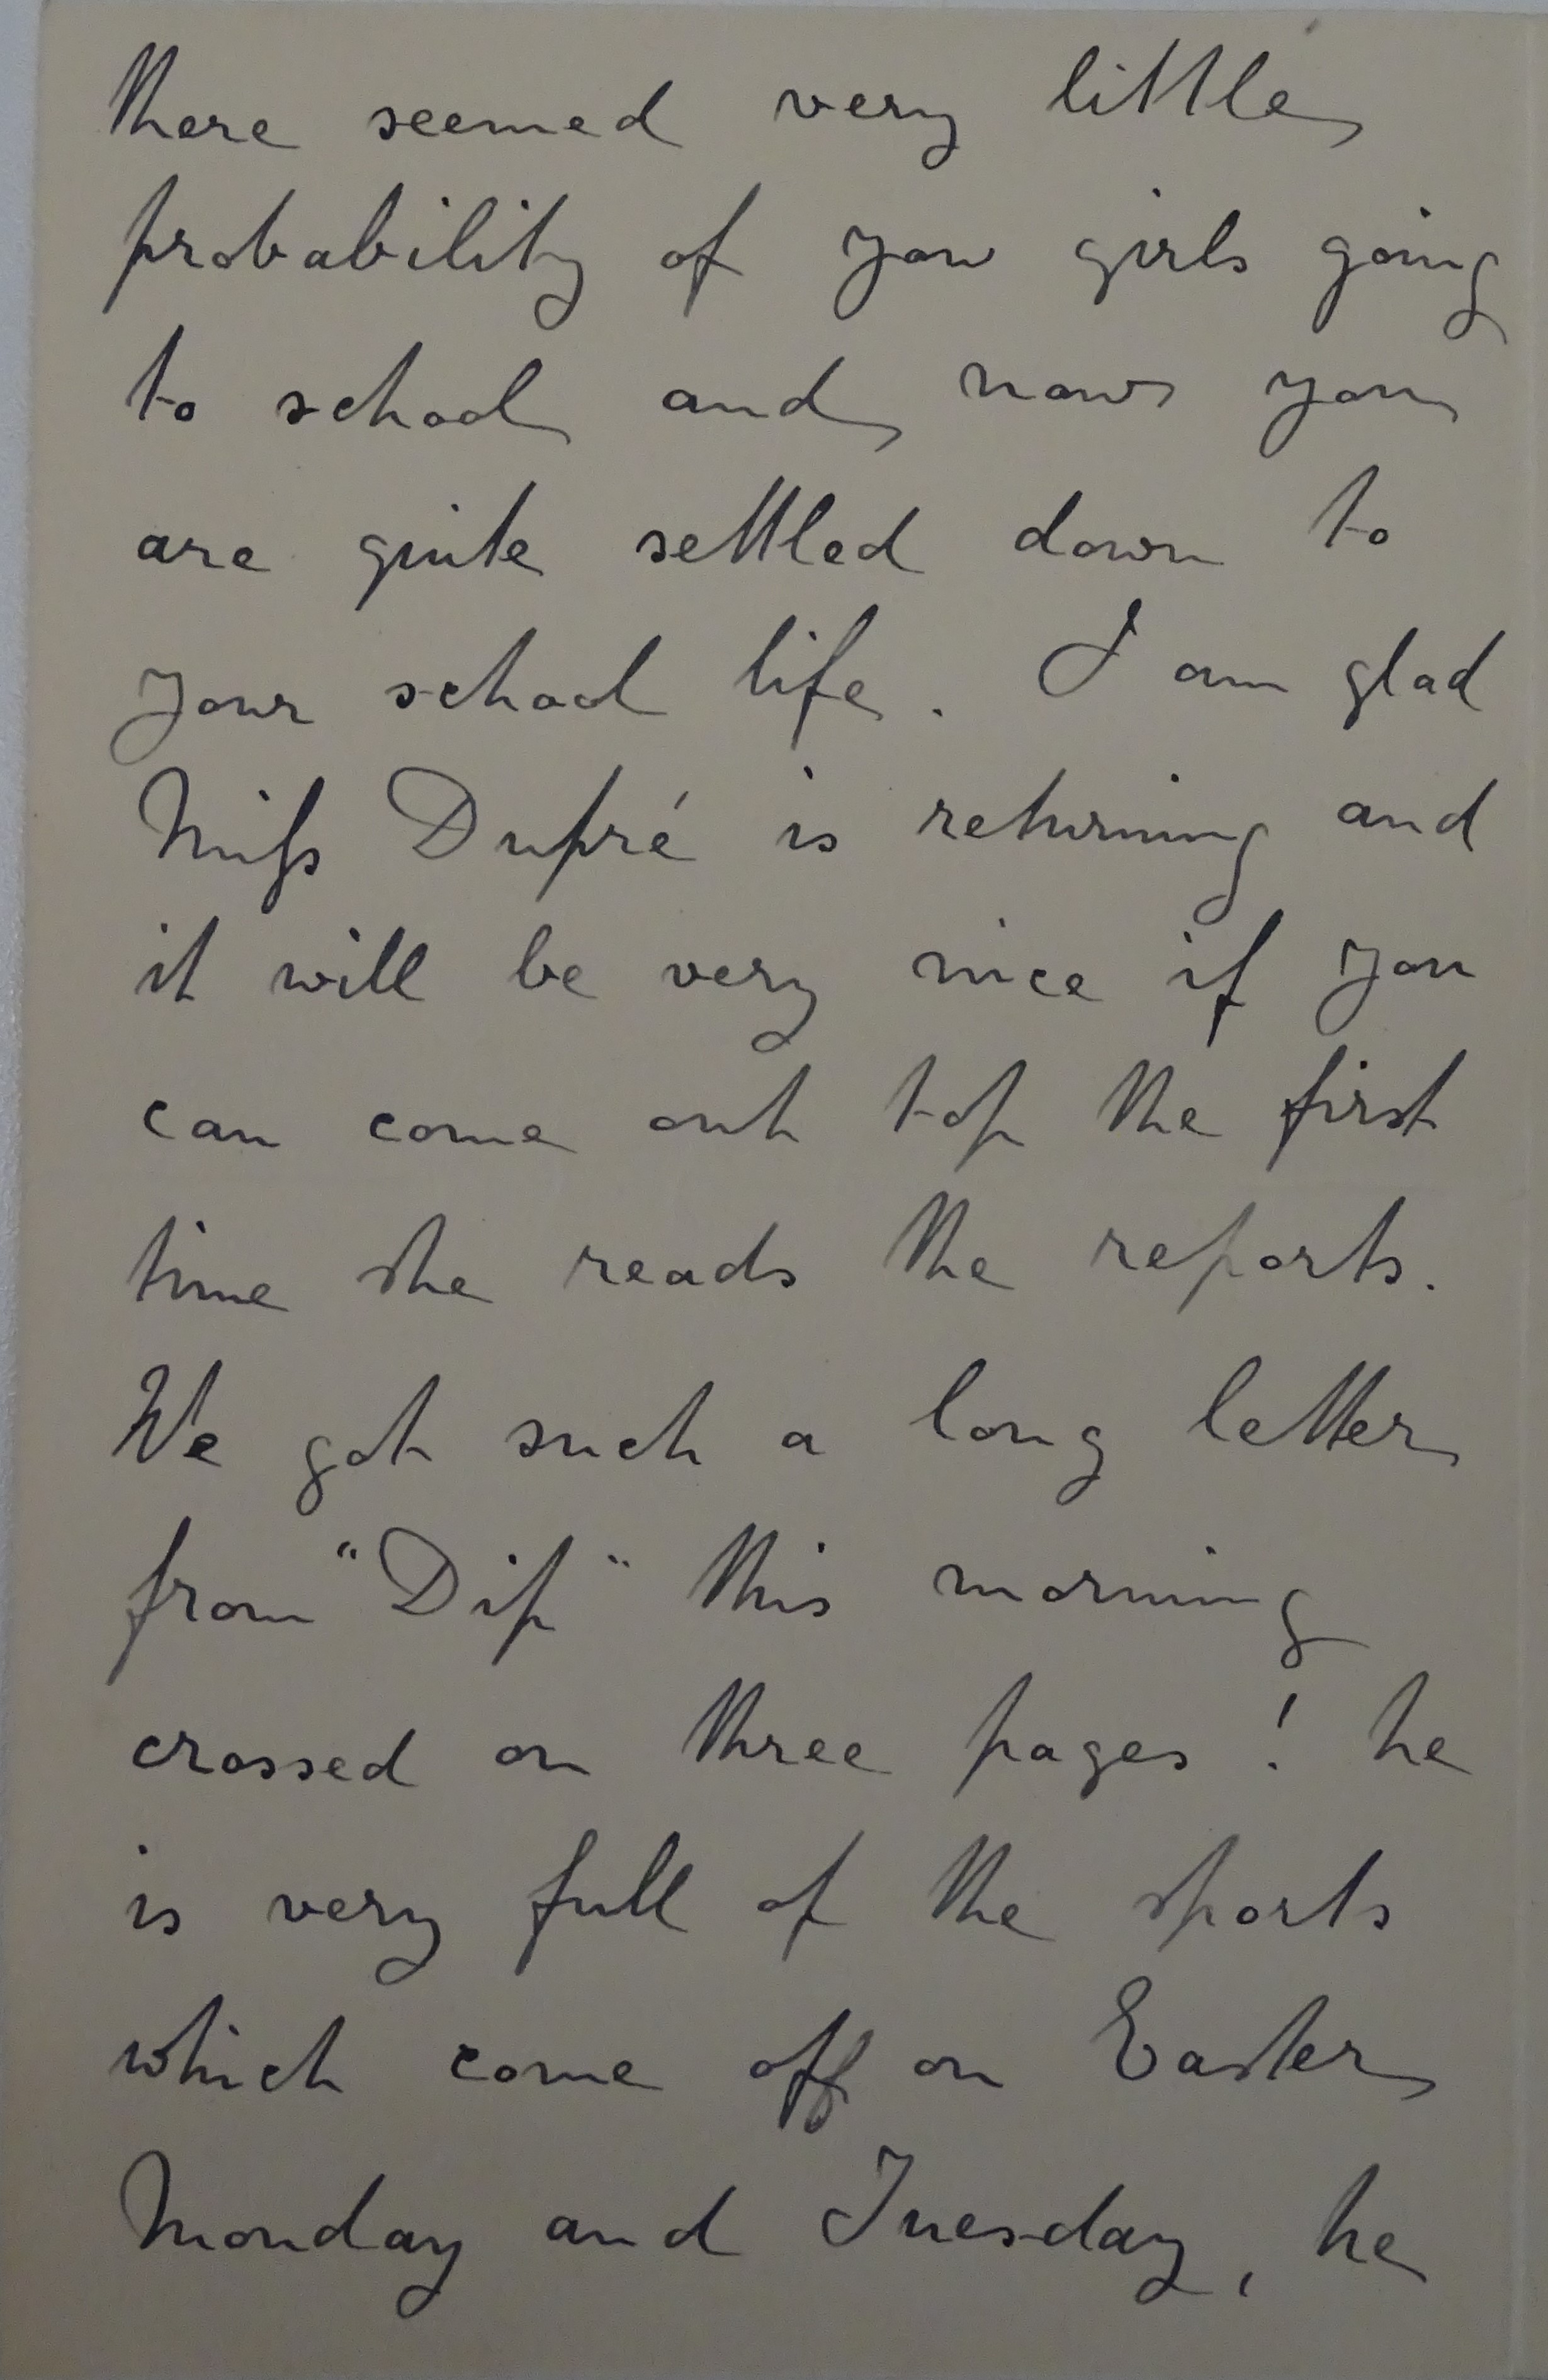 there seemed very little
probability of you girls going
to school and now you
are quite settled down to
your school life. I am glad
Miss Dupré is returning and
it will be very nice if you
can come out top the first
time she reads the reports.
We got such a long letter
from "Dip" this morning
crossed on three pages! he
is very full of the sports
which come off on Easter
Monday and Tuesday, he